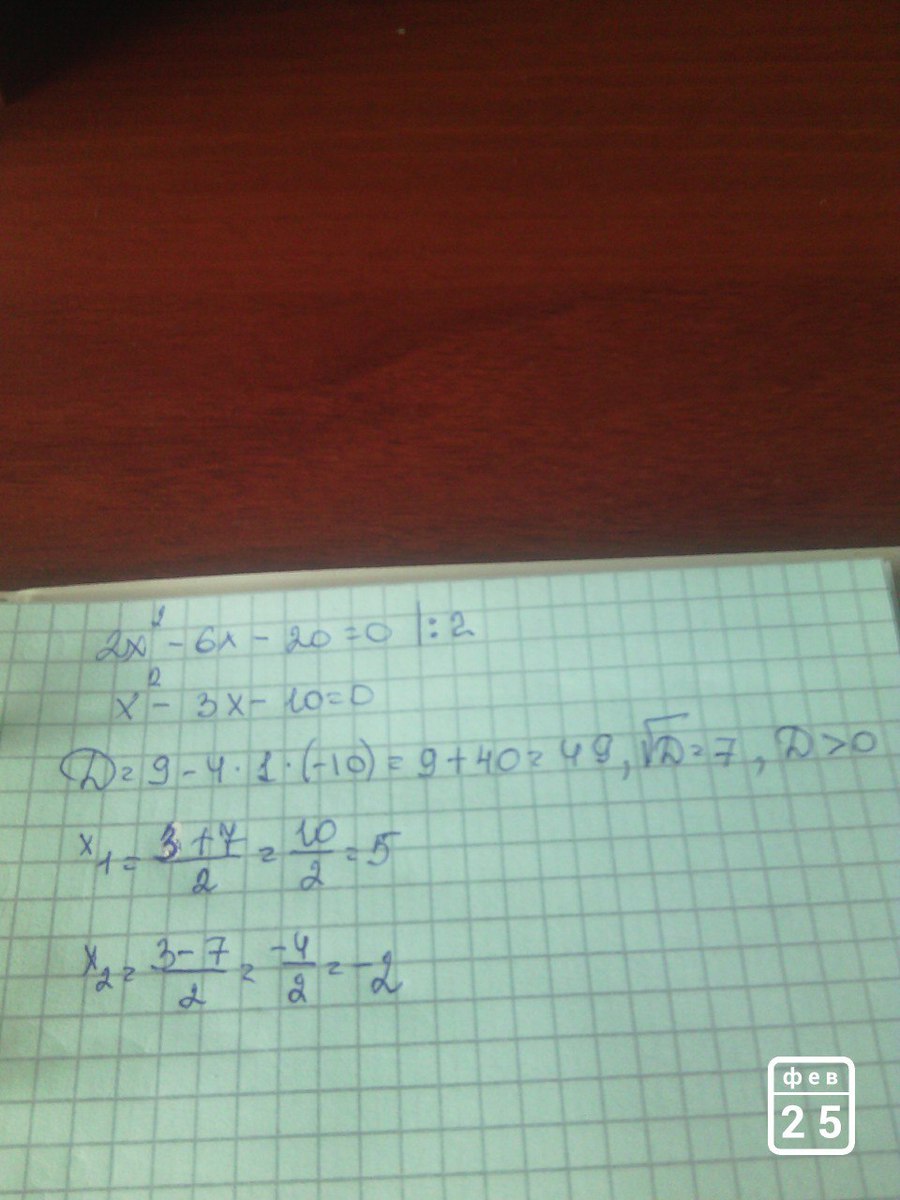 2x² - 6x - 20 = 0 |: 2
x² - 3x - 10 = 0
D = 9 - 4 · 1 · (-10) = 9 + 40 = 49, √D = 7, D > 0
x₁ = (3 + 7)/2 = 10/2 = 5
x₂ = (3 - 7)/2 = -4/2 = -2
фев
25